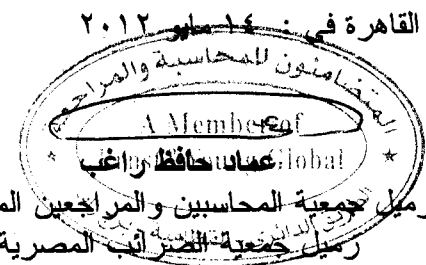 القاهرة في : ١٤ مايو ٢٠١٢
المتضامنون للمحاسبة والمراجعة
A Member of
Global
عماد حافظ راغب
زميل جمعية المحاسبين والمراجعين
زميل جمعية الضرائب المصرية